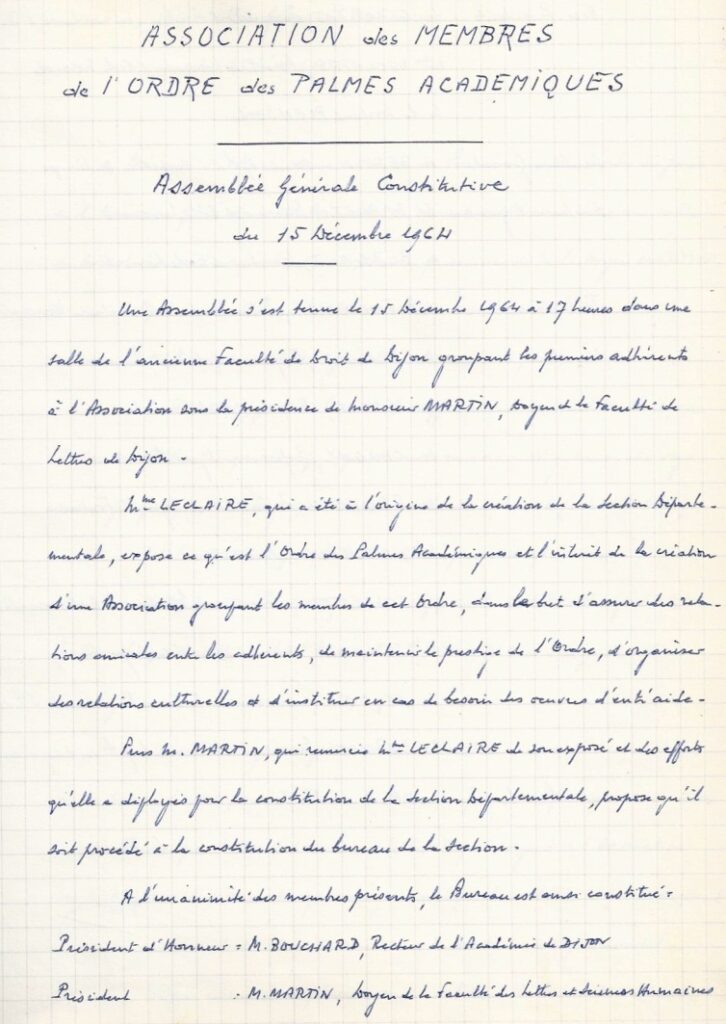 ASSOCIATION des MEMBRES
de l'ORDRE des PALMES ACADEMIQUES
Assemblée Générale Constitutive
du 15 Décembre 1964
Une Assemblée s'est tenue le 15 Décembre 1964 à 17 heures dans une
salle de l'ancienne Faculté de Droit de Dijon groupant les premiers adhérents
à l'Association sous la présidence de Monsieur MARTIN, Doyen de la Faculté de
Lettres de Dijon -
Mme LECLAIRE, qui a été à l'origine de la création de la Section Départe-
mentale, expose ce qu'est l'Ordre des Palmes Académiques et l'intérêt de la création
d'une Association groupant les membres de cet Ordre, dans le but d'assurer des rela-
tions amicales entre les adhérents, de maintenir le prestige de l'Ordre, d'organiser
des relations culturelles et d'instituer en cas de besoin des oeuvres d'entr'aide -
Puis M. MARTIN, qui remercie Mme LECLAIRE de son exposé et des efforts
qu'elle a déployés pour la constitution de la Section Départementale, propose qu'il
soit procédé à la constitution du bureau de la Section -
A l'unanimité des membres présents, le Bureau est ainsi constitué =
Président d'Honneur = M. BOUCHARD, Recteur de l'Académie de DIJON
Président : M. MARTIN, Doyen de la Faculté des Lettres et Sciences Humaines